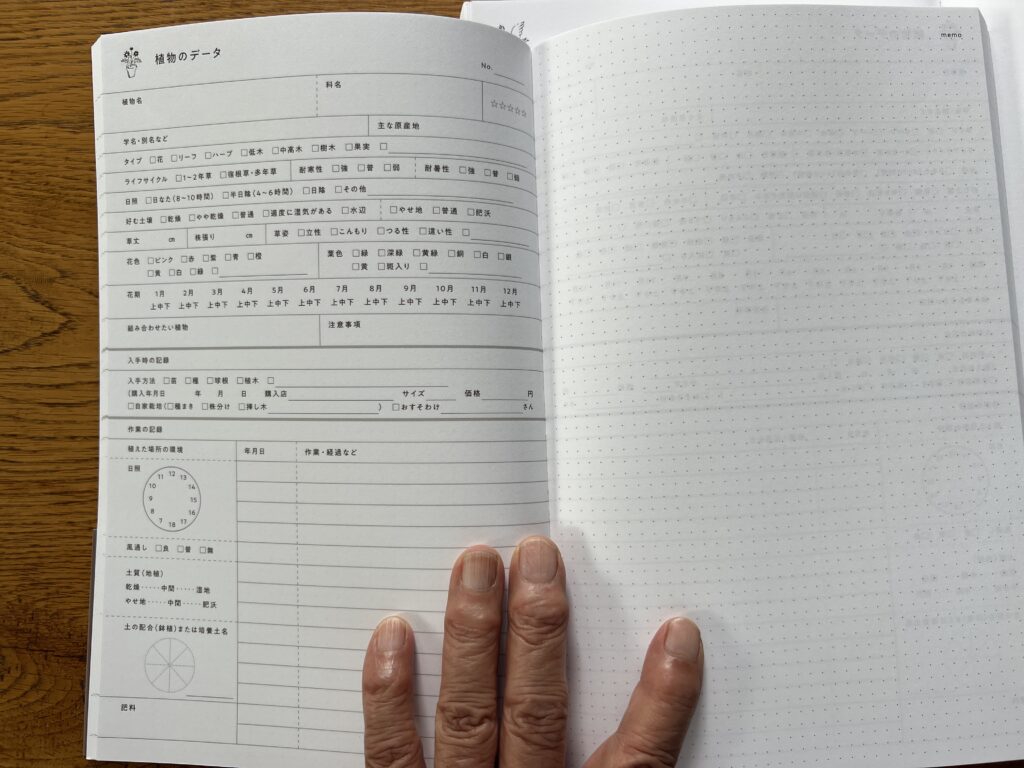 植物のデータ
No.
植物名
科名
☆☆☆☆☆
学名・別名など
主な原産地
タイプ □花 □リーフ □ハーブ □低木 □中高木 □樹木 □果実 □
ライフサイクル □1~2年草 □宿根草・多年草
耐寒性 □強 □普 □弱
耐暑性 □強 □普 □弱
日照 □日なた(8~10時間) □半日陰(4~6時間) □日陰 □その他
好む土壌 □乾燥 □やや乾燥 □普通 □適度に湿気がある □水辺 □やせ地 □普通 □肥沃
草丈 cm
株張り cm
草姿 □立性 □こんもり □つる性 □這い性 □
花色 □ピンク □赤 □紫 □青 □橙
□黄 □白 □緑 □
葉色 □緑 □深緑 □黄緑 □銅 □白 □銀
□黄 □斑入り □
花期 1月 2月 3月 4月 5月 6月 7月 8月 9月 10月 11月 12月
上中下 上中下 上中下 上中下 上中下 上中下 上中下 上中下 上中下 上中下 上中下 上中下
組み合わせたい植物
注意事項
入手時の記録
入手方法 □苗 □種 □球根 □植木 □
(購入年月日 年 月 日 購入店 サイズ 価格 円
□自家栽培(□種まき □株分け □挿し木 ) □おすそわけ さん
作業の記録
植えた場所の環境
年月日
作業・経過など
日照
11 12 13
10 14
9 15
8 16
7 18 17
風通し □良 □普 □無
土質(地植)
乾燥……中間……湿地
やせ地……中間……肥沃
土の配合(鉢植)または培養土名
肥料
memo